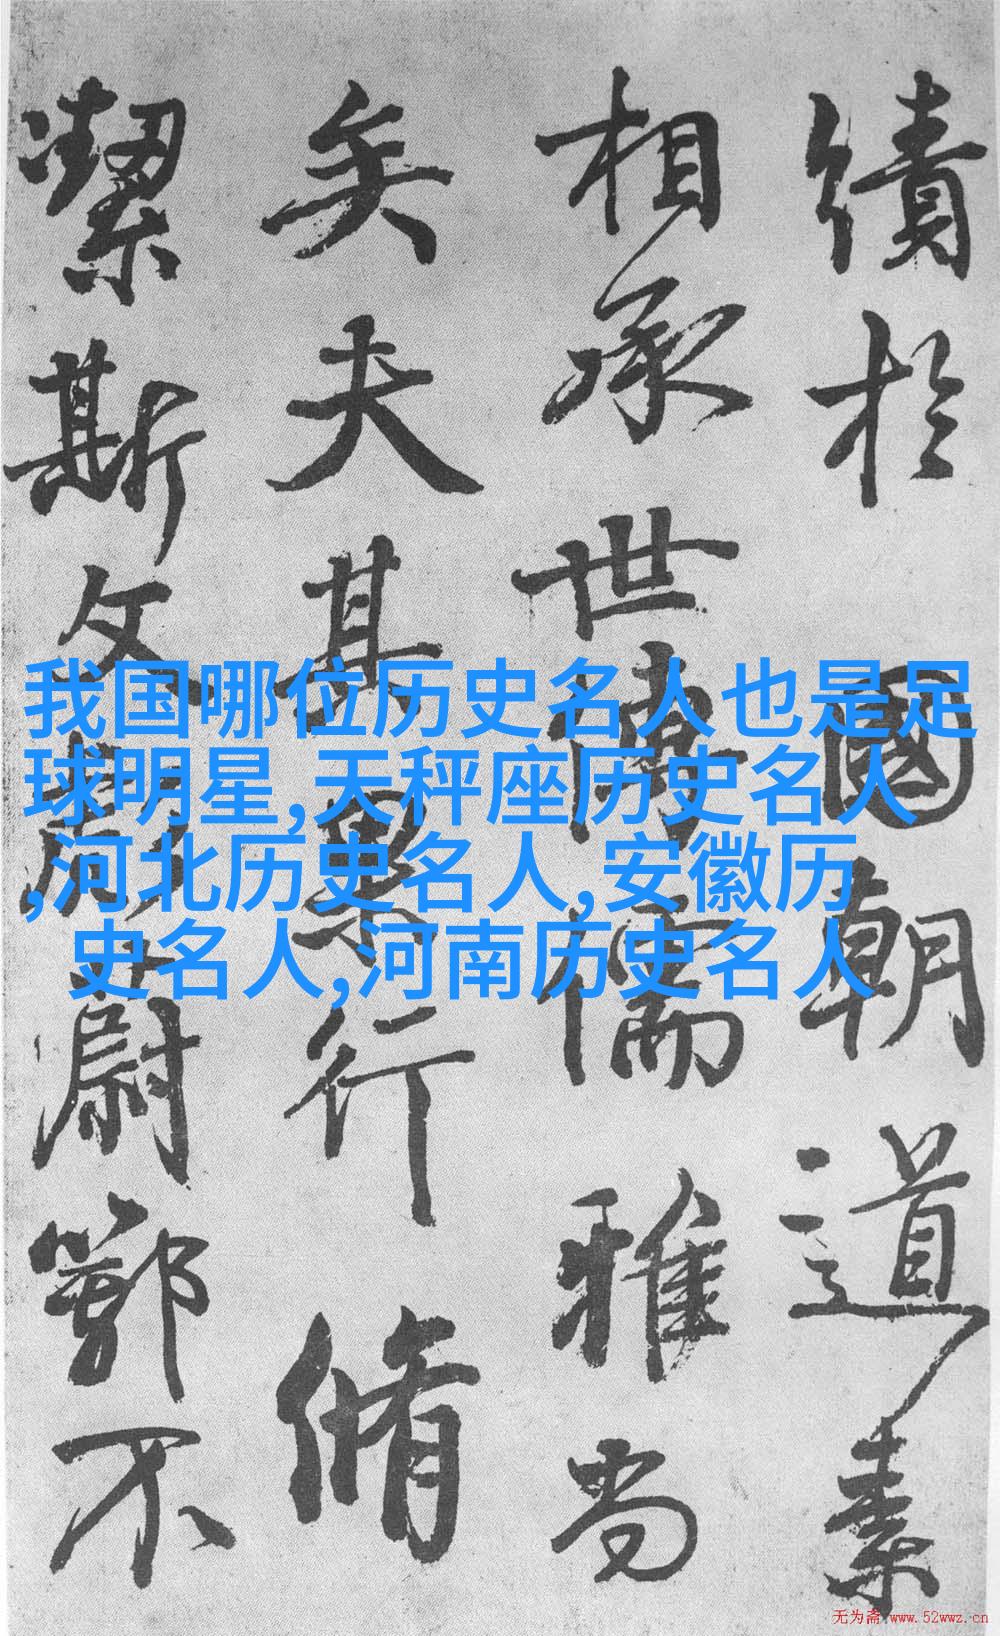 績於國朝道素
相承世傳儒雅尚
矣夫其果行脩
潔斯文彪蔚鄂不
我国哪位历史名人也是足
球明星,天秤座历史名人
,河北历史名人,安徽历
史名人,河南历史名人
无为斋 www.52wwz.cn